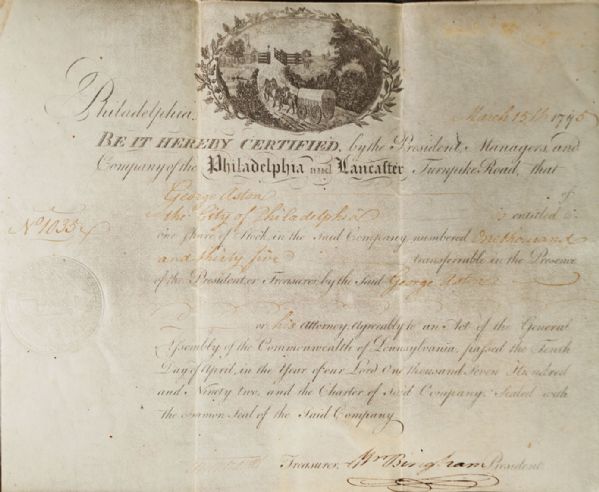 Philadelphia, March 15th 1795
BE IT HEREBY CERTIFIED, by the President, Managers, and
Company of the Philadelphia and Lancaster Turnpike Road, that
George Aston of
the City of Philadelphia is entitled to
No 1035
one Share of Stock, in the Said Company, numbered One thousand
and thirty five transferrable in the Presence
of the President or Treasurer, by the Said George Aston
or his Attorney, agreeably to an Act of the General
Assembly of the Commonwealth of Pennsylvania, passed the Tenth
Day of April, in the Year of our Lord One thousand Seven Hundred
and Ninety two, and the Charter of Said Company. Sealed with
the Common Seal of the Said Company
Treasurer. Wm Bingham President